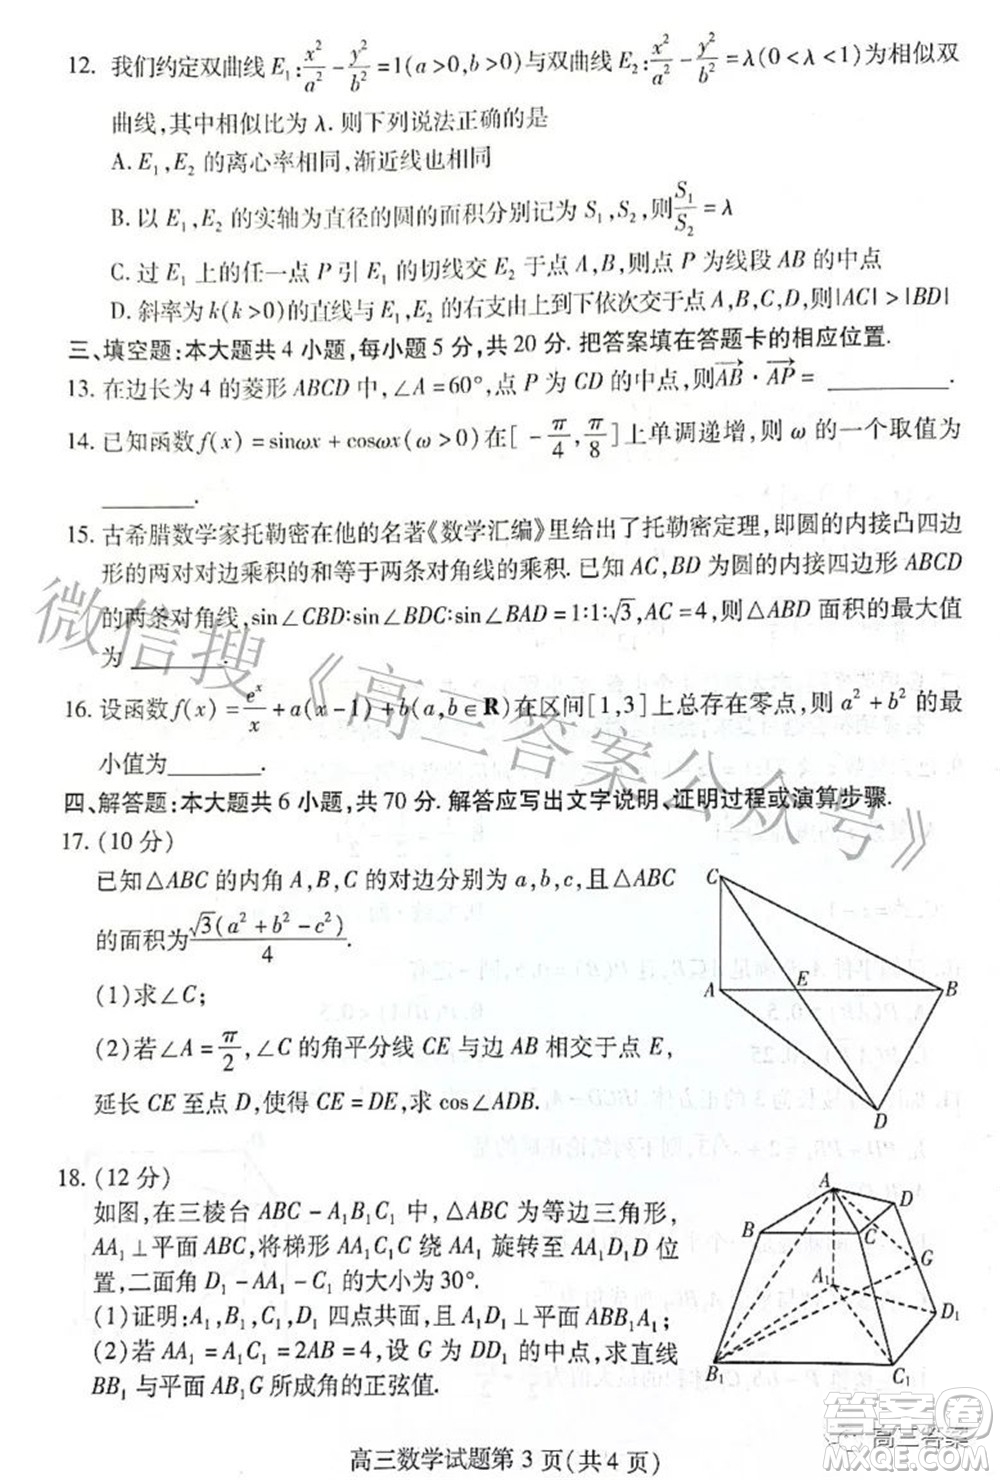 12. 我们约定双曲线 E₁:x²/a² − y²/b² = 1(a>0,b>0)与双曲线 E₂:x²/a² − y²/b² = λ(0<λ<1)为相似双
曲线,其中相似比为 λ. 则下列说法正确的是
A. E₁,E₂ 的离心率相同,渐近线也相同
B. 以 E₁,E₂ 的实轴为直径的圆的面积分别记为 S₁,S₂,则 S₁/S₂ = λ
C. 过 E₁ 上的任一点 P 引 E₁ 的切线交 E₂ 于点 A,B,则点 P 为线段 AB 的中点
D. 斜率为 k(k>0)的直线与 E₁,E₂ 的右支由上到下依次交于点 A,B,C,D,则|AC|>|BD|
三、填空题:本大题共 4 小题,每小题 5 分,共 20 分. 把答案填在答题卡的相应位置.
13. 在边长为 4 的菱形 ABCD 中,∠A=60°,点 P 为 CD 的中点,则 AB→ · AP→ = ________.
14. 已知函数 f(x)=sinωx+cosωx(ω>0)在[−π/4, π/8]上单调递增,则 ω 的一个取值为
________.
15. 古希腊数学家托勒密在他的名著《数学汇编》里给出了托勒密定理,即圆的内接凸四边
形的两对对边乘积的和等于两条对角线的乘积. 已知 AC,BD 为圆的内接四边形 ABCD
的两条对角线,sin∠CBD:sin∠BDC:sin∠BAD=1:1:√3,AC=4,则△ABD 面积的最大值
为 ________.
16. 设函数 f(x)=eˣ/x+a(x−1)+b(a,b∈R)在区间[1,3]上总存在零点,则 a²+b² 的最
小值为________.
四、解答题:本大题共 6 小题,共 70 分. 解答应写出文字说明、证明过程或演算步骤.
17. (10 分)
已知△ABC 的内角 A,B,C 的对边分别为 a,b,c,且△ABC
的面积为 √3(a²+b²−c²)/4.
(1)求∠C;
(2)若∠A=π/2,∠C 的角平分线 CE 与边 AB 相交于点 E,
延长 CE 至点 D,使得 CE=DE,求 cos∠ADB.
C
A
E
B
D
18. (12 分)
如图,在三棱台 ABC−A₁B₁C₁ 中,△ABC 为等边三角形,
AA₁⊥平面 ABC,将梯形 AA₁C₁C 绕 AA₁ 旋转至 AA₁D₁D 位
置,二面角 D₁−AA₁−C₁ 的大小为 30°.
(1)证明:A₁,B₁,C₁,D₁ 四点共面,且 A₁D₁⊥平面 ABB₁A₁;
(2)若 AA₁=A₁C₁=2AB=4,设 G 为 DD₁ 的中点,求直线
BB₁ 与平面 AB₁G 所成角的正弦值.
A
D
B
C
G
A₁
D₁
B₁
C₁
高三数学试题第 3 页(共 4 页)
微信搜《高三答案公众号》
答案卷
高三答案